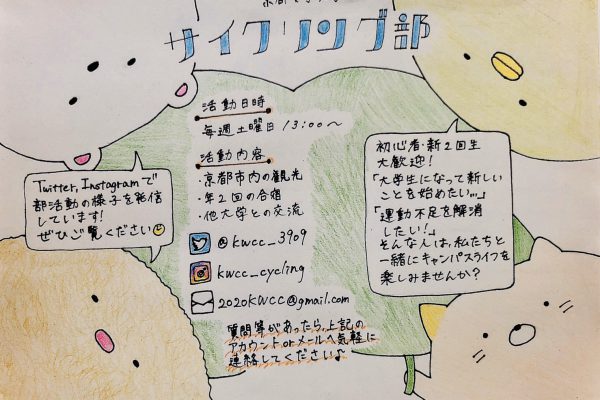 サイクリング部
活動日時
・毎週土曜日 13:00〜
活動内容
・京都市内の観光
・年2回の合宿
・他大学との交流
@kwcc_3909
kwcc_cycling
2020KWCC@gmail.com
質問等があったら、上記の
アカウントorメールへ気軽に
連絡してください♪
Twitter, Instagramで
部活動の様子を発信
しています!
ぜひご覧ください
初心者・新2回生
大歓迎!
「大学生になって新しい
ことを始めたい...」
「運動不足を解消
したい!」
そんな人は、私たちと
一緒にキャンパスライフを
楽しみませんか?